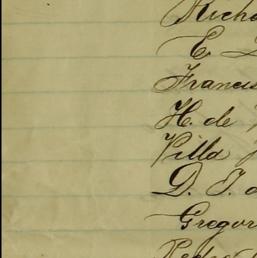 Richa
E.
Francis
H. de
Villa
D. J.
Gregor
Pedro